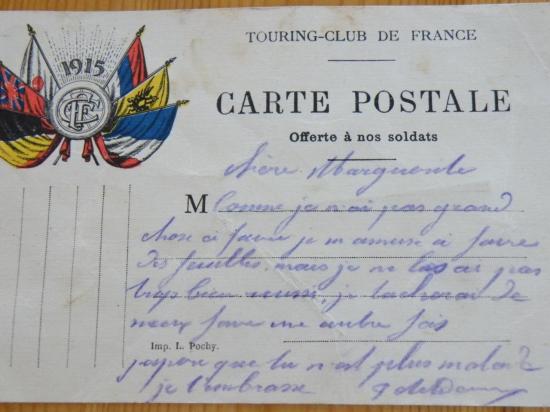 TOURING-CLUB DE FRANCE
1915
TCF
CARTE POSTALE
Offerte à nos soldats
Chère Marguerite
M Comme je n'ai pas grand
chose à faire je m'amuse à faire
des feuilles, mais je ne les ai pas
trop bien réussi, je tacherai de
mieux faire une autre fois
Imp. L. Pochy.
j'espère que tu n'est plus malade
je t'embrasse